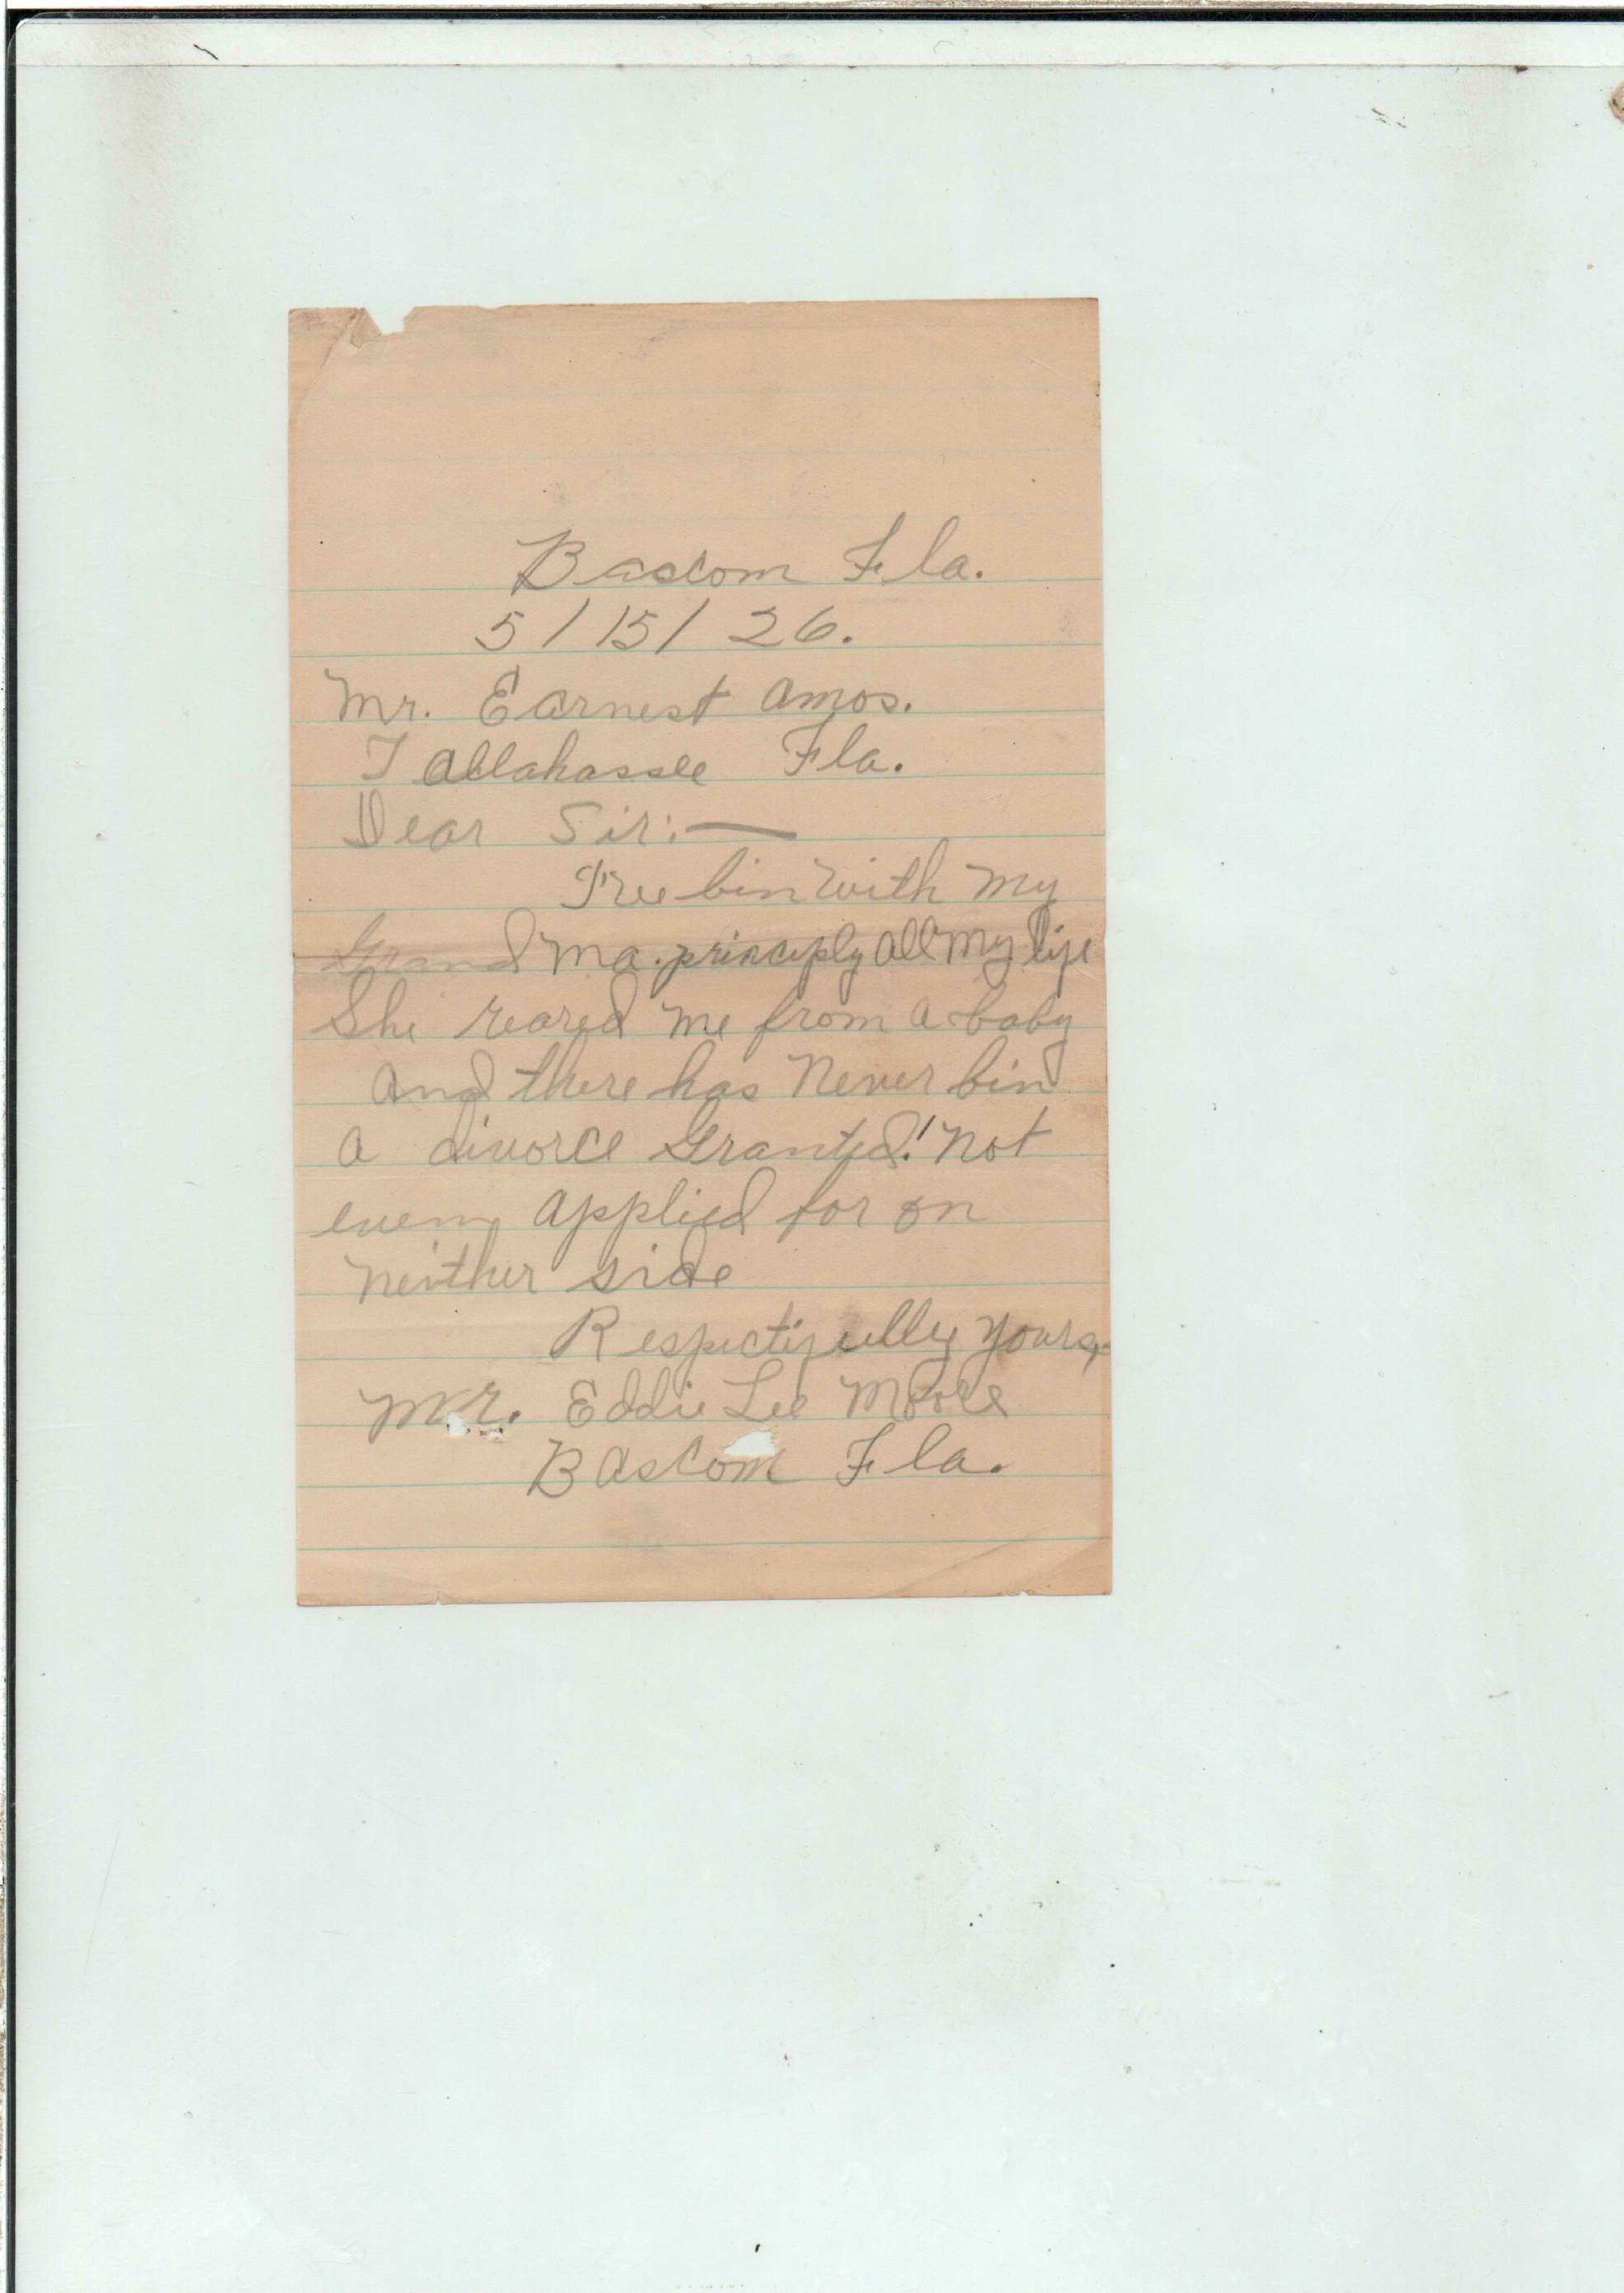 Bascom Fla.
5/15/26.
Mr. Earnest Amos.
Tallahassee Fla.
Dear Sir:—
I've bin with my
Grand Ma. principly all my life
She reared me from a baby
and there has Never bin
a divorce Granted! Not
even applied for on
neither side
Respectifully yours,
Mr. Eddie Lee Moore
Bascom Fla.